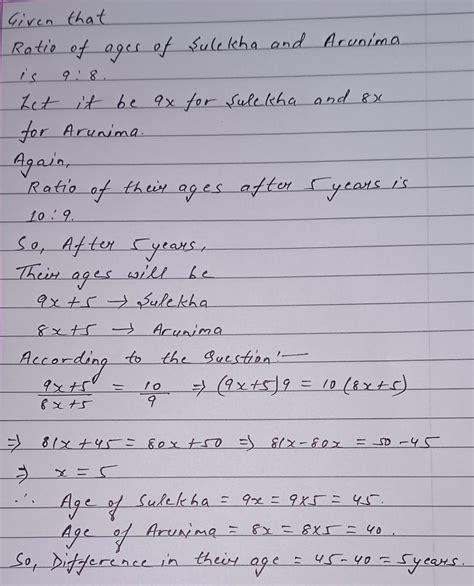 Given that
Ratio of ages of Sulekha and Arunima
is 9:8.
Let it be 9x for Sulekha and 8x
for Arunima.
Again,
Ratio of their ages after 5 years is
10:9.
So, After 5 years,
Their ages will be
9x+5 → Sulekha
8x+5 → Arunima
According to the Question:—
9x+5/8x+5 = 10/9 ⇒ (9x+5)9 = 10(8x+5)
⇒ 81x+45 = 80x+50 ⇒ 81x-80x = 50-45
⇒ x = 5
∴ Age of Sulekha = 9x = 9x5 = 45.
Age of Arunima = 8x = 8x5 = 40.
So, Difference in their age = 45-40 = 5years.